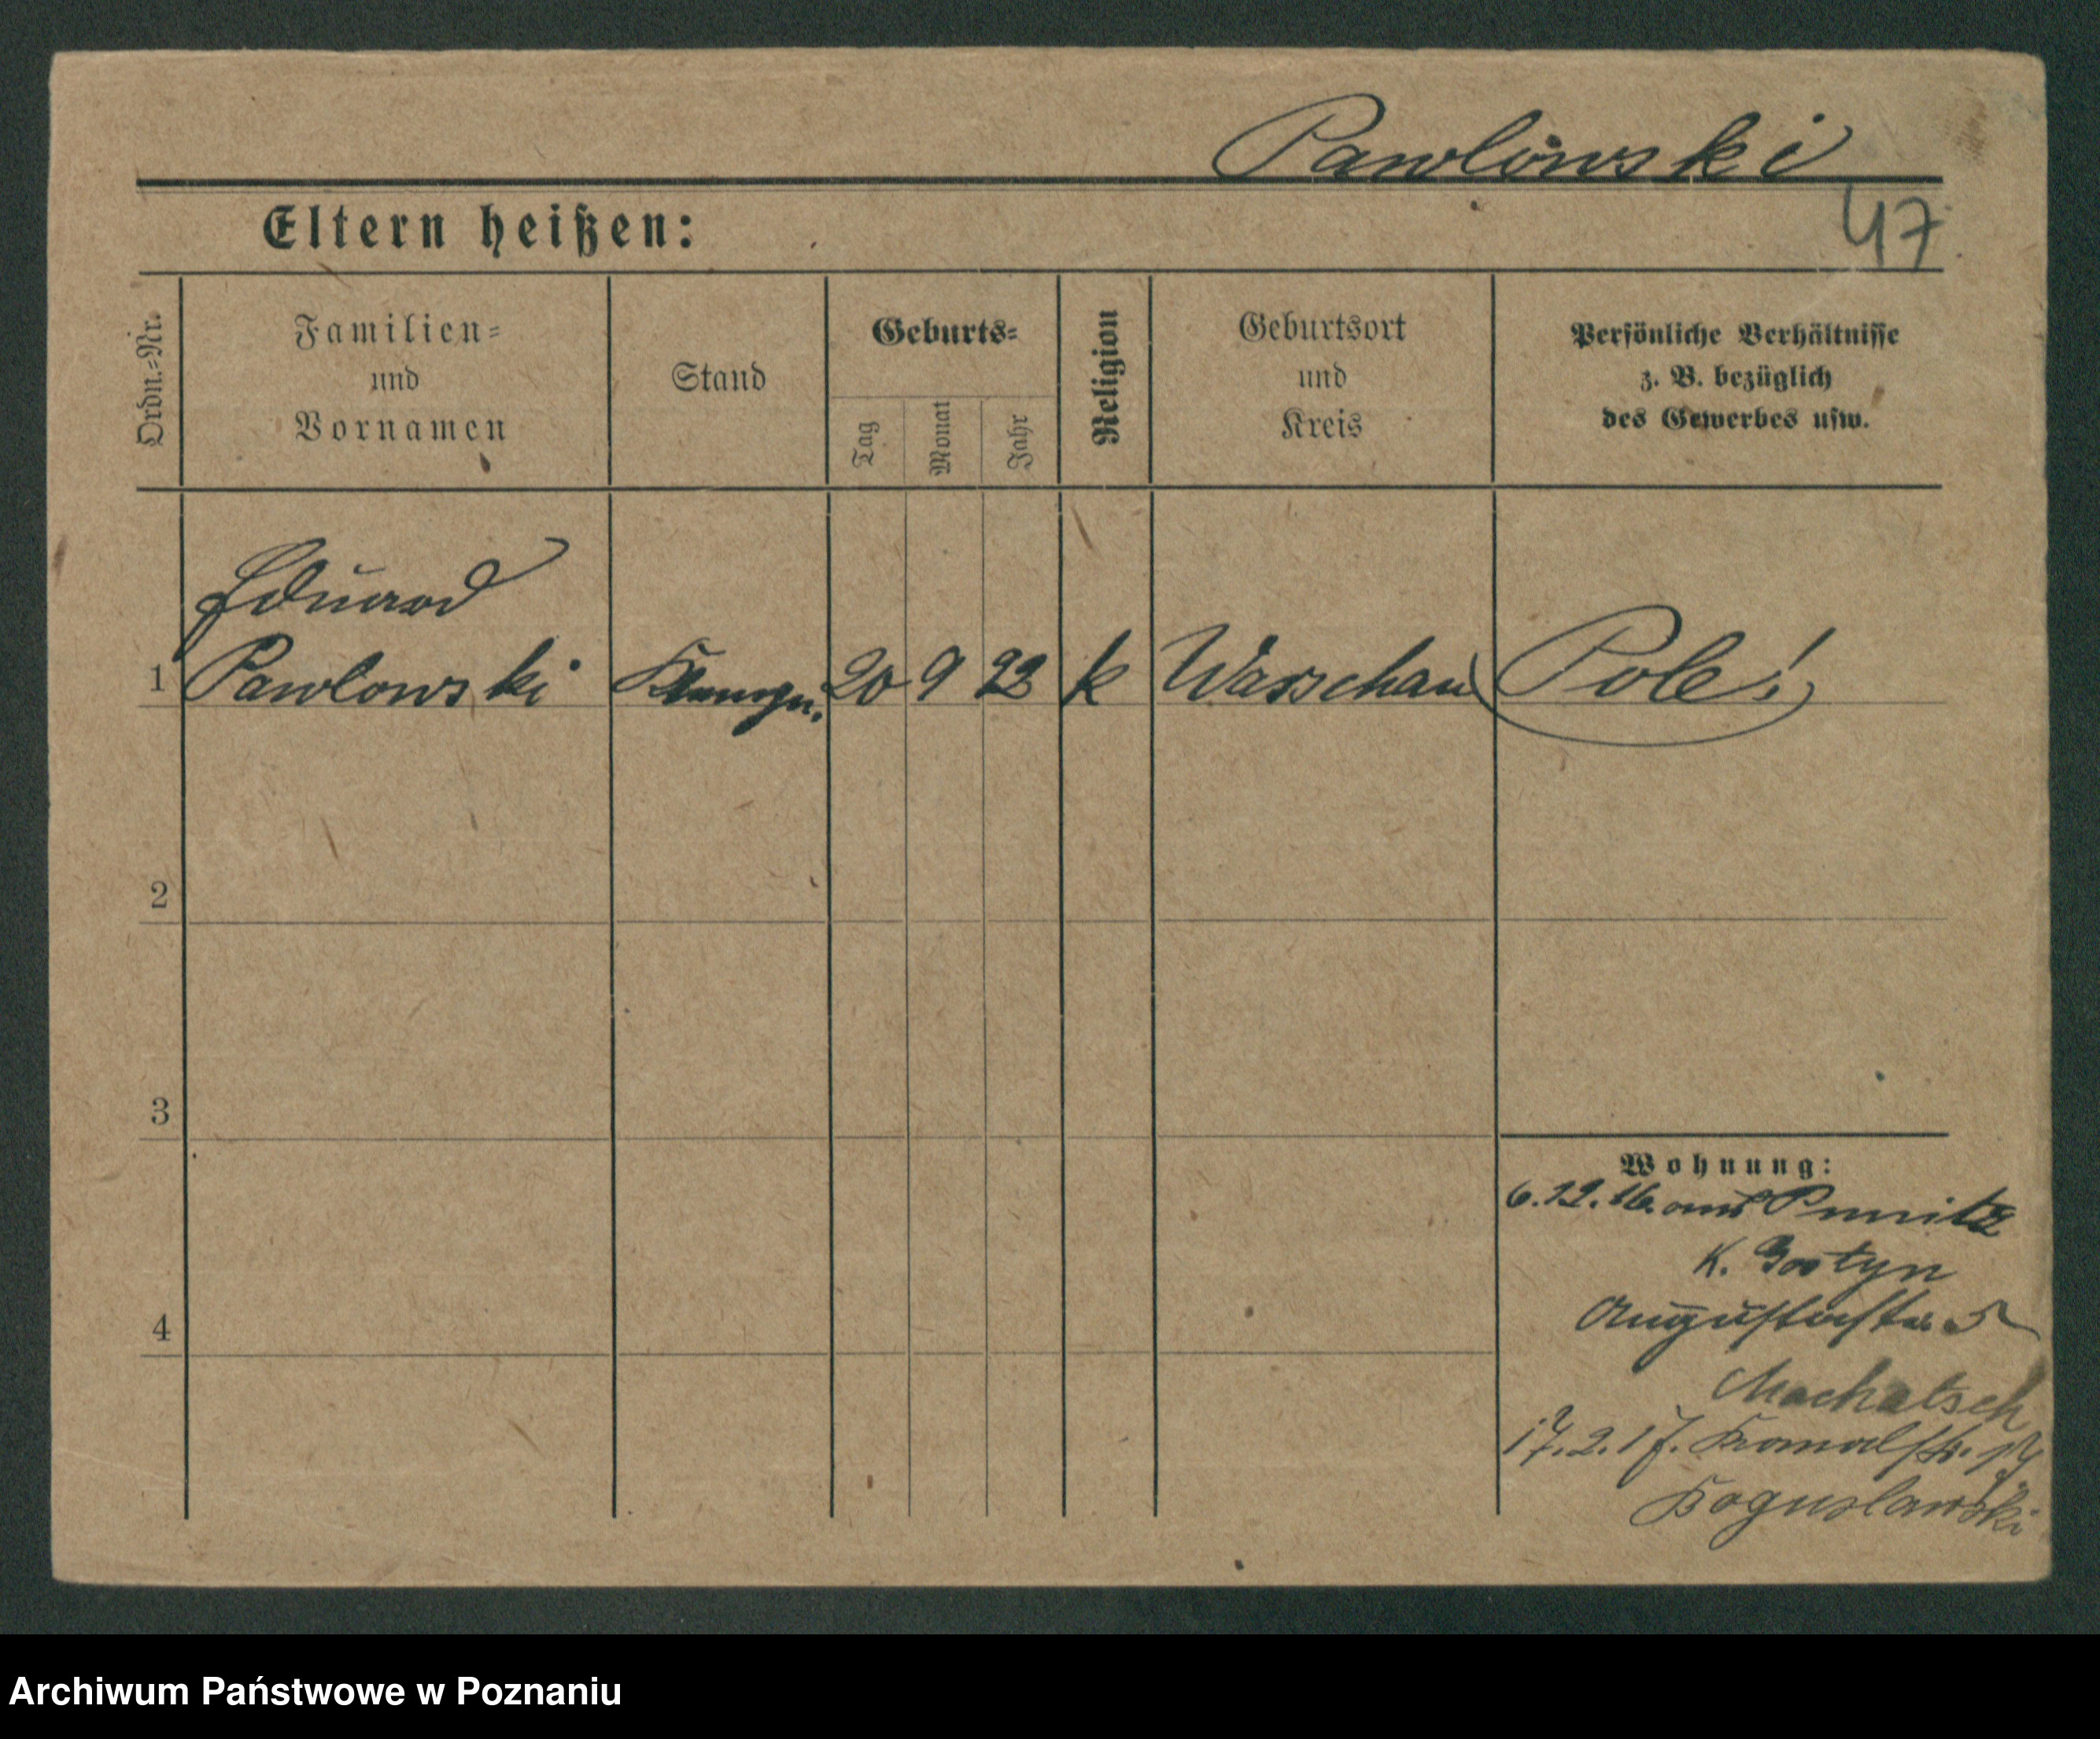 Pawlowski
47
Eltern heißen:
Ordn.-Nr.
Familien-
und
Vornamen
Stand
Geburts-
Tag
Monat
Jahr
Religion
Geburtsort
und
Kreis
Persönliche Verhältnisse
z. B. bezüglich
des Gewerbes usw.
Eduard
1 Pawlowski 20 9 k Warschau Pole!
2
3
4
Wohnung:
6.12.16. aus Punitz
K. Gostyn
Augustastr. 5
Machatsch
17.2.17.
Boguslawski
Archiwum Państwowe w Poznaniu